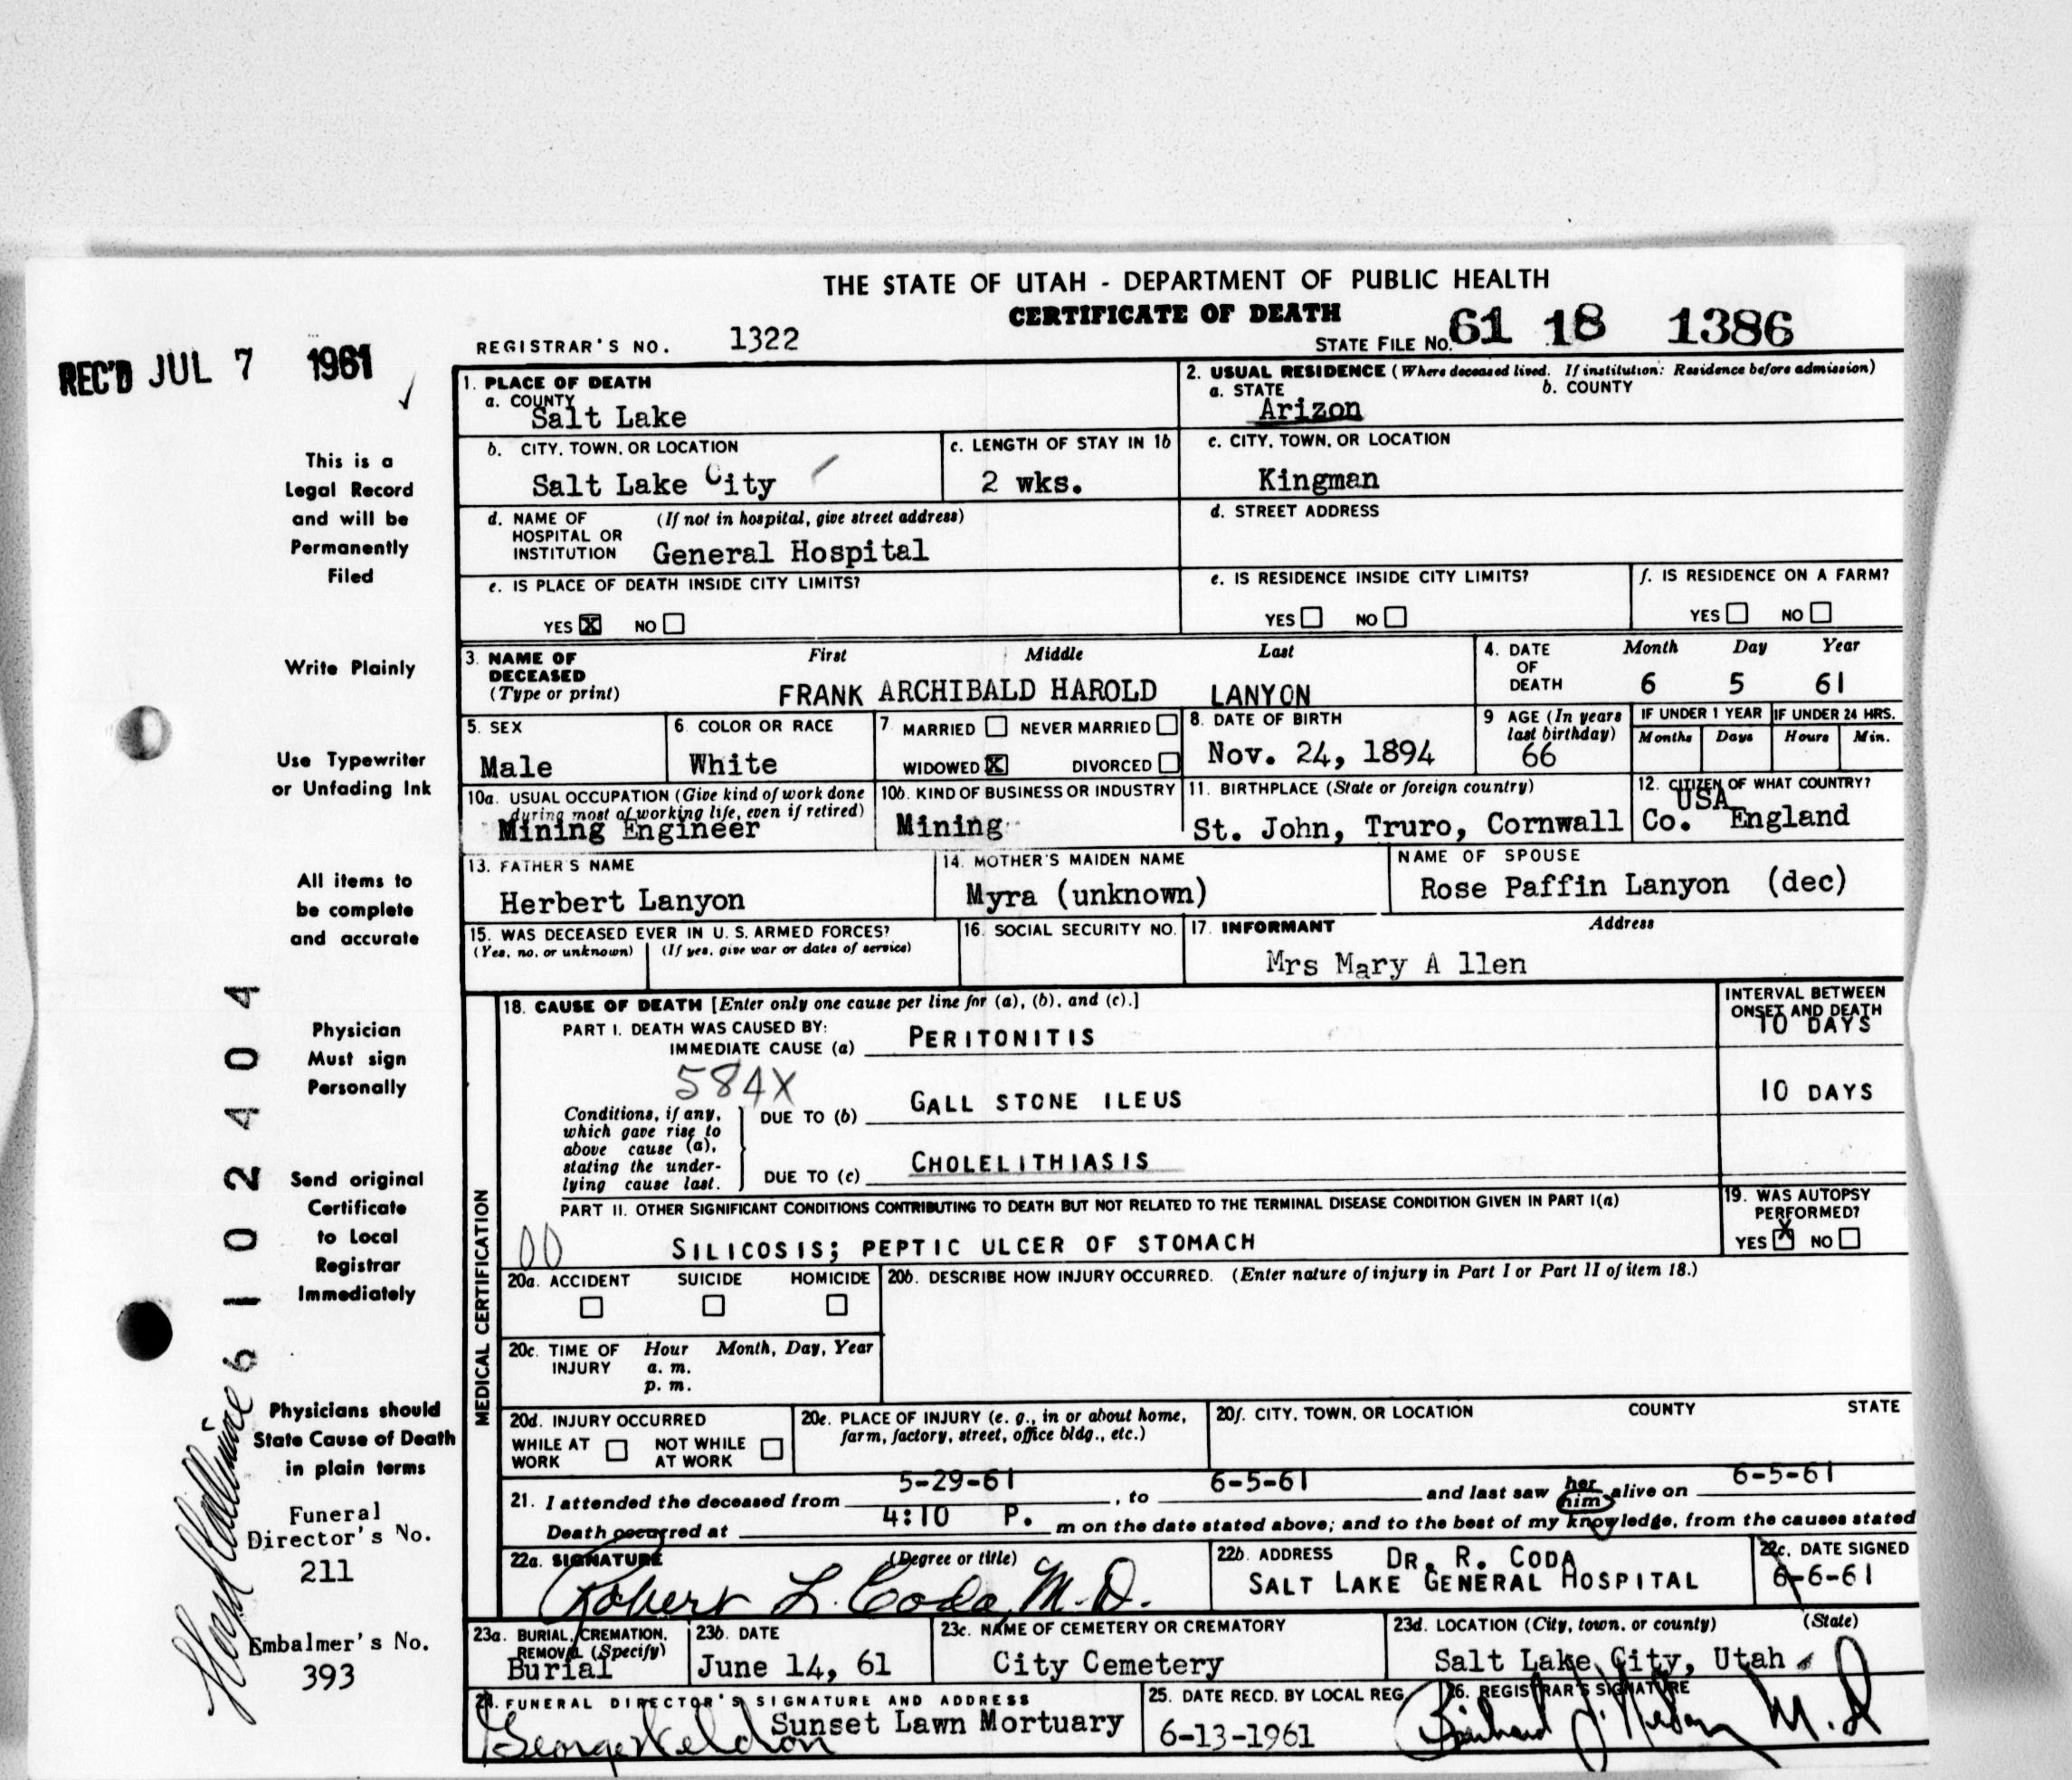 THE STATE OF UTAH - DEPARTMENT OF PUBLIC HEALTH
CERTIFICATE OF DEATH
REGISTRAR'S NO. 1322
STATE FILE NO. 61 18 1386
REC'D JUL 7 1961
1. PLACE OF DEATH
a. COUNTY
Salt Lake
2. USUAL RESIDENCE (Where deceased lived. If institution: Residence before admission)
a. STATE b. COUNTY
Arizon
b. CITY, TOWN, OR LOCATION
Salt Lake City
c. LENGTH OF STAY IN 1b
2 wks.
c. CITY, TOWN, OR LOCATION
Kingman
d. NAME OF HOSPITAL OR INSTITUTION (If not in hospital, give street address)
General Hospital
d. STREET ADDRESS
e. IS PLACE OF DEATH INSIDE CITY LIMITS?
YES X NO
e. IS RESIDENCE INSIDE CITY LIMITS?
YES NO
f. IS RESIDENCE ON A FARM?
YES NO
3. NAME OF DECEASED (Type or print)
First Middle Last
FRANK ARCHIBALD HAROLD LANYON
4. DATE OF DEATH
Month Day Year
6 5 61
5. SEX
Male
6. COLOR OR RACE
White
7. MARRIED NEVER MARRIED
WIDOWED X DIVORCED
8. DATE OF BIRTH
Nov. 24, 1894
9 AGE (In years last birthday)
66
IF UNDER 1 YEAR
Months Days
IF UNDER 24 HRS.
Hours Min.
10a. USUAL OCCUPATION (Give kind of work done during most of working life, even if retired)
Mining Engineer
10b. KIND OF BUSINESS OR INDUSTRY
Mining
11. BIRTHPLACE (State or foreign country)
St. John, Truro, Cornwall
12. CITIZEN OF WHAT COUNTRY?
USA
Co. England
13. FATHER'S NAME
Herbert Lanyon
14. MOTHER'S MAIDEN NAME
Myra (unknown)
NAME OF SPOUSE
Rose Paffin Lanyon (dec)
15. WAS DECEASED EVER IN U. S. ARMED FORCES?
(Yes, no, or unknown) (If yes, give war or dates of service)
16. SOCIAL SECURITY NO.
17. INFORMANT Address
Mrs Mary A llen
MEDICAL CERTIFICATION
18. CAUSE OF DEATH [Enter only one cause per line for (a), (b), and (c).]
INTERVAL BETWEEN ONSET AND DEATH
PART I. DEATH WAS CAUSED BY:
IMMEDIATE CAUSE (a) PERITONITIS 10 DAYS
584X
Conditions, if any, which gave rise to above cause (a), stating the underlying cause last.
DUE TO (b) GALL STONE ILEUS 10 DAYS
DUE TO (c) CHOLELITHIASIS
PART II. OTHER SIGNIFICANT CONDITIONS CONTRIBUTING TO DEATH BUT NOT RELATED TO THE TERMINAL DISEASE CONDITION GIVEN IN PART I(a)
00 SILICOSIS; PEPTIC ULCER OF STOMACH
19. WAS AUTOPSY PERFORMED?
YES X NO
20a. ACCIDENT SUICIDE HOMICIDE
20b. DESCRIBE HOW INJURY OCCURRED. (Enter nature of injury in Part I or Part II of item 18.)
20c. TIME OF INJURY Hour Month, Day, Year
a. m.
p. m.
20d. INJURY OCCURRED
WHILE AT WORK NOT WHILE AT WORK
20e. PLACE OF INJURY (e. g., in or about home, farm, factory, street, office bldg., etc.)
20f. CITY, TOWN, OR LOCATION COUNTY STATE
21. I attended the deceased from 5-29-61, to 6-5-61 and last saw her him alive on 6-5-61
Death occurred at 4:10 P. m on the date stated above; and to the best of my knowledge, from the causes stated
22a. SIGNATURE (Degree or title)
Robert L. Coda, M.D.
22b. ADDRESS DR. R. CODA
SALT LAKE GENERAL HOSPITAL
22c. DATE SIGNED
6-6-61
23a. BURIAL, CREMATION, REMOVAL (Specify)
Burial
23b. DATE
June 14, 61
23c. NAME OF CEMETERY OR CREMATORY
City Cemetery
23d. LOCATION (City, town, or county) (State)
Salt Lake City, Utah
24. FUNERAL DIRECTOR'S SIGNATURE AND ADDRESS
Sunset Lawn Mortuary
25. DATE RECD. BY LOCAL REG.
6-13-1961
26. REGISTRAR'S SIGNATURE
M.D
This is a
Legal Record
and will be
Permanently
Filed
Write Plainly
Use Typewriter
or Unfading Ink
All items to
be complete
and accurate
Physician
Must sign
Personally
Send original
Certificate
to Local
Registrar
Immediately
Physicians should
State Cause of Death
in plain terms
Funeral
Director's No.
211
Embalmer's No.
393
6102404